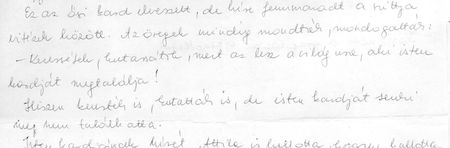 Ez az ősi kard elveszett, de híre fennmaradt a szittya
vitézek között. Az öregek mindig mondták, mondogatták:
– Keressétek, kutassátok, mert az lesz a világ ura, aki isten
kardját megtalálja!
Hiszen keresték is, kutatták is, de isten kardját senki
meg nem találhatta.
Isten kardjának hírét Attila is hallotta, hogyne hallotta